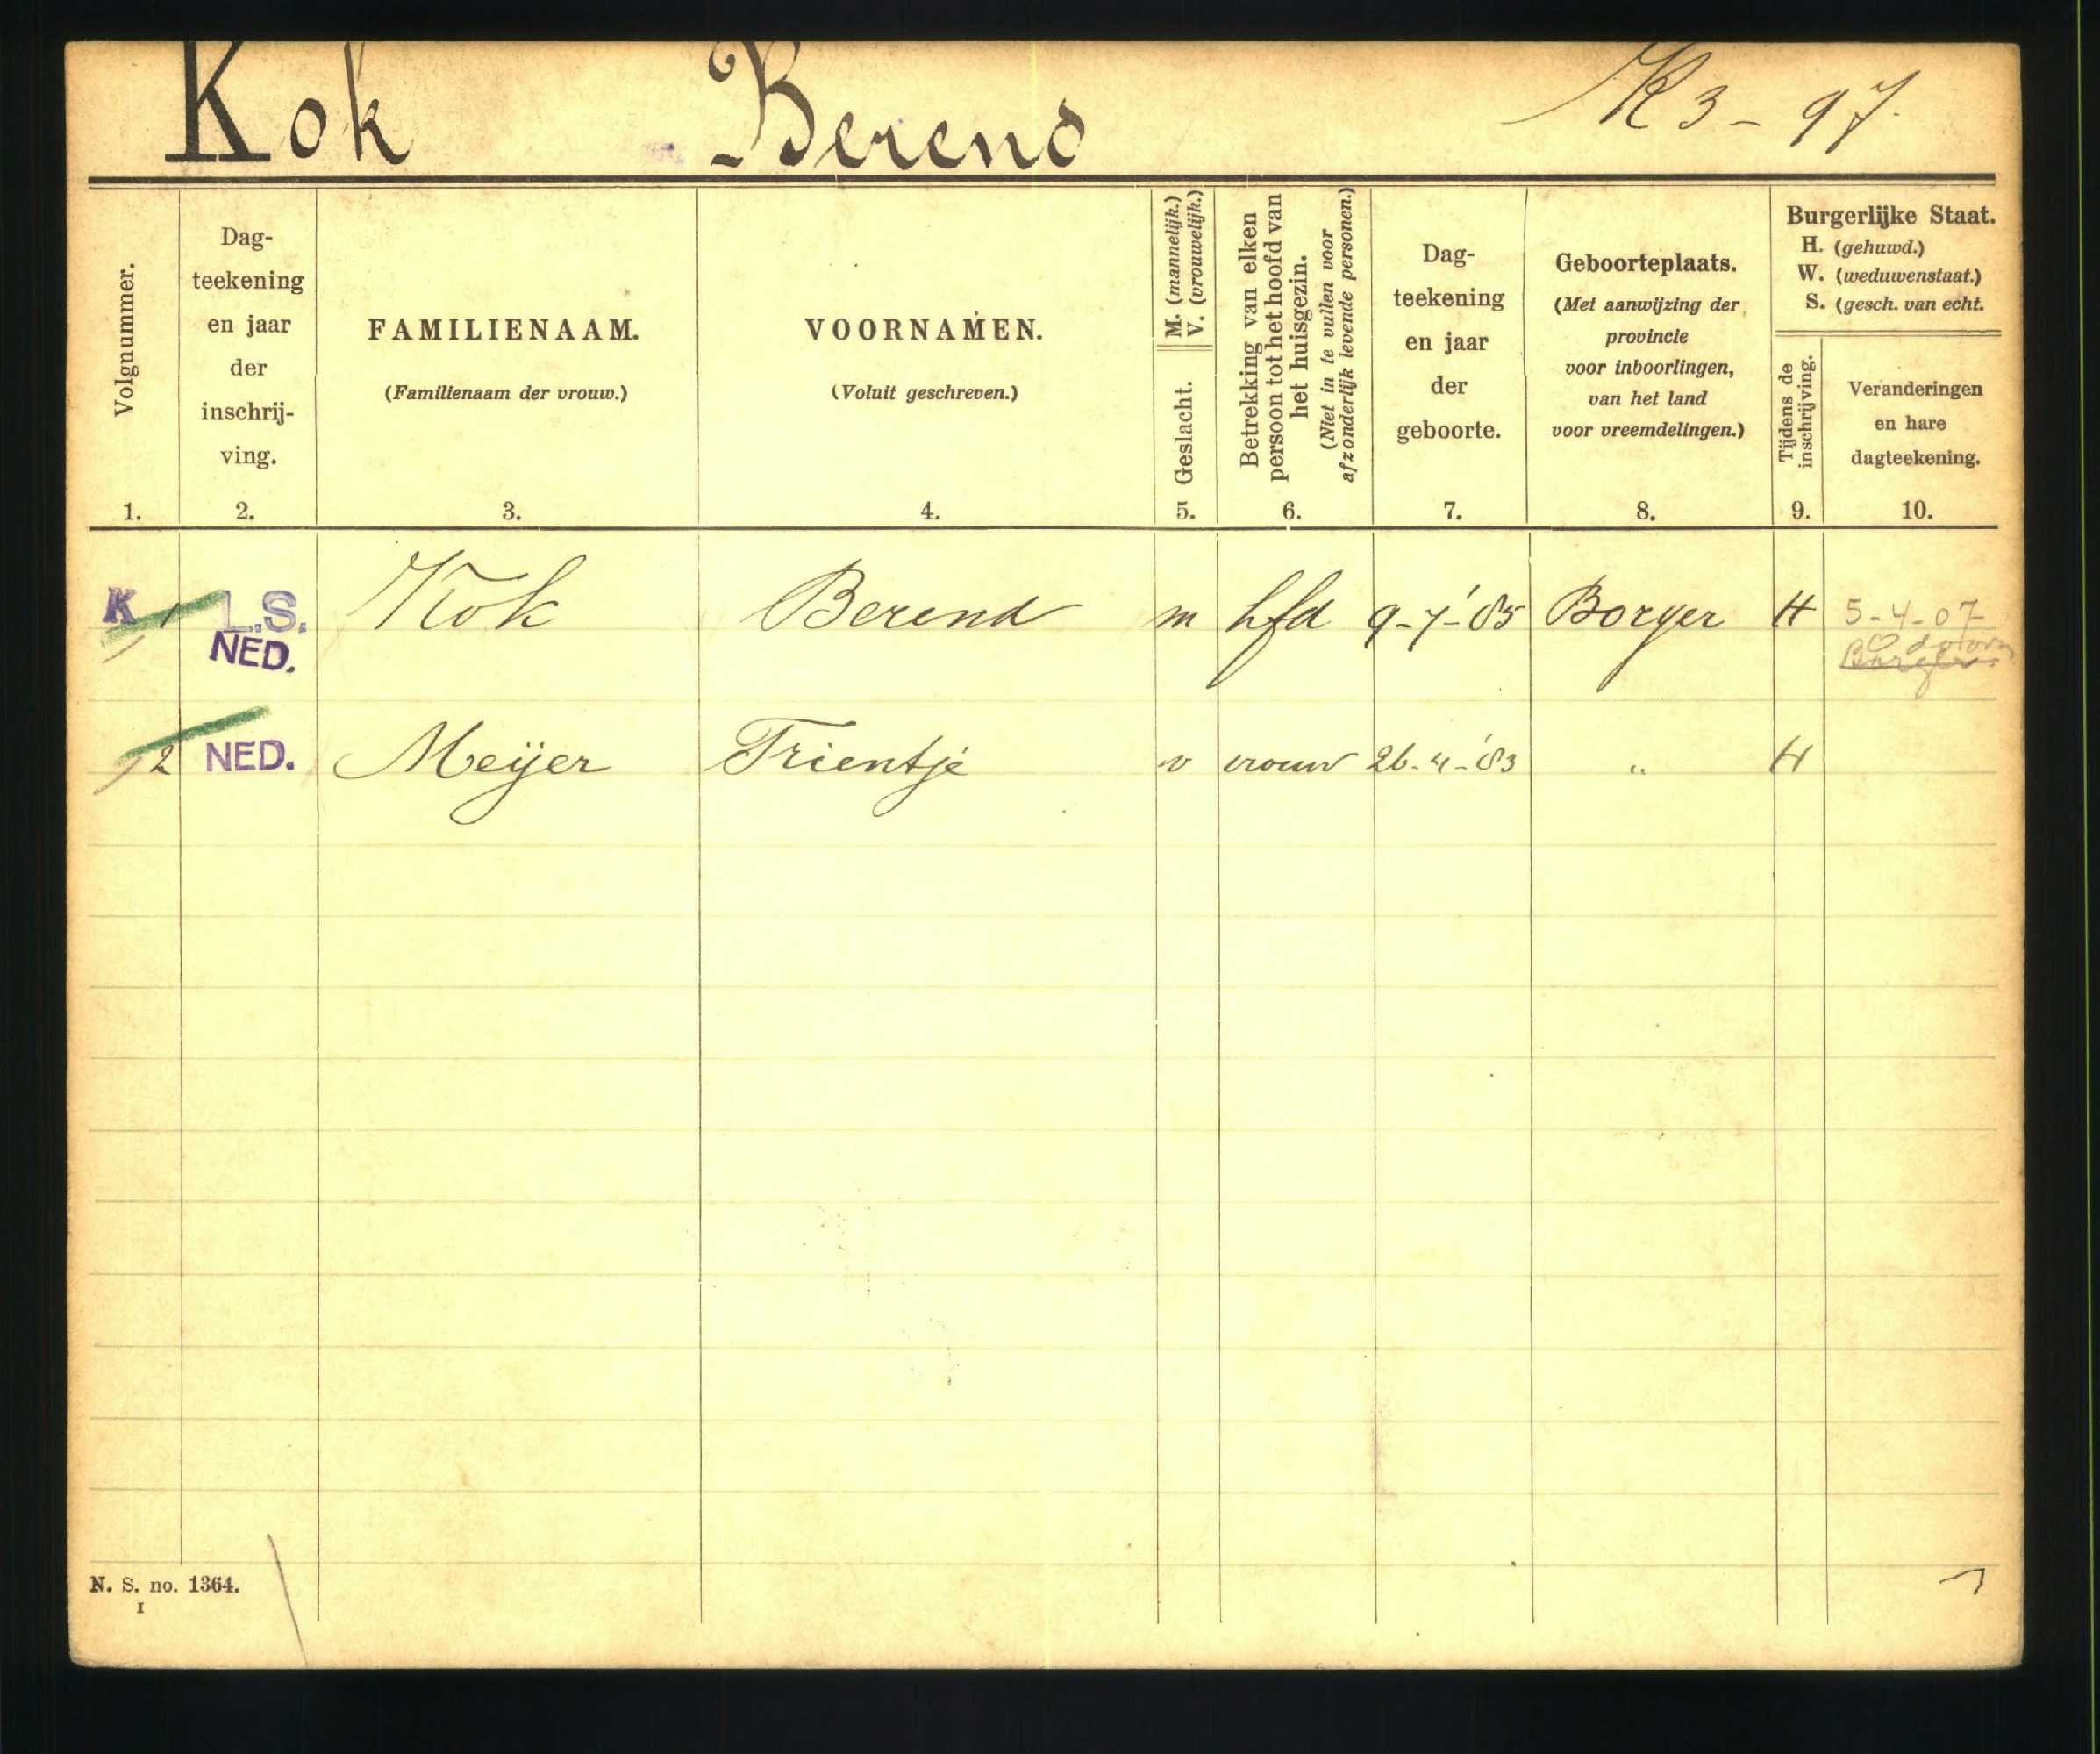 Kok Berend K3-97.
Volgnummer.
1.
Dag-
teekening
en jaar
der
inschrij-
ving.
2.
FAMILIENAAM.
(Familienaam der vrouw.)
3.
VOORNAMEN.
(Voluit geschreven.)
4.
M. (mannelijk.)
V. (vrouwelijk.)
Geslacht.
5.
Betrekking van elken
persoon tot het hoofd van
het huisgezin.
(Niet in te vullen voor
afzonderlijk levende personen.)
6.
Dag-
teekening
en jaar
der
geboorte.
7.
Geboorteplaats.
(Met aanwijzing der
provincie
voor inboorlingen,
van het land
voor vreemdelingen.)
8.
Burgerlijke Staat.
H. (gehuwd.)
W. (weduwenstaat.)
S. (gesch. van echt.
Tijdens de
inschrijving.
9.
Veranderingen
en hare
dagteekening.
10.
K 1 L.S. Kok Berend m hfd 9-7-'85 Borger H 5-4-07
NED. Odoorn
Borger
2 NED. Meijer Trientje v vrouw 26-4-'83 " H
N. S. no. 1364.
I